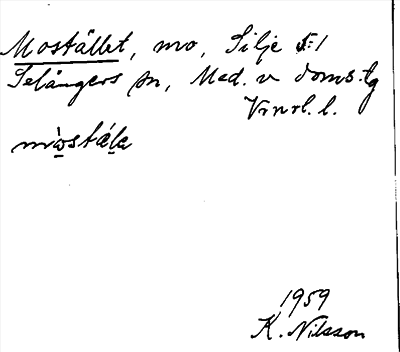 Mostället, mo, Silje 5:1
Selångers sn, Med. v doms.lg
Vrnrl. l.
mo̱stäḻa
1959
K. Nilsson